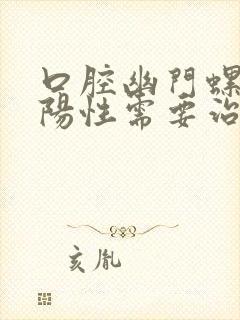 口腔幽門螺
陽性需要治
亥胤